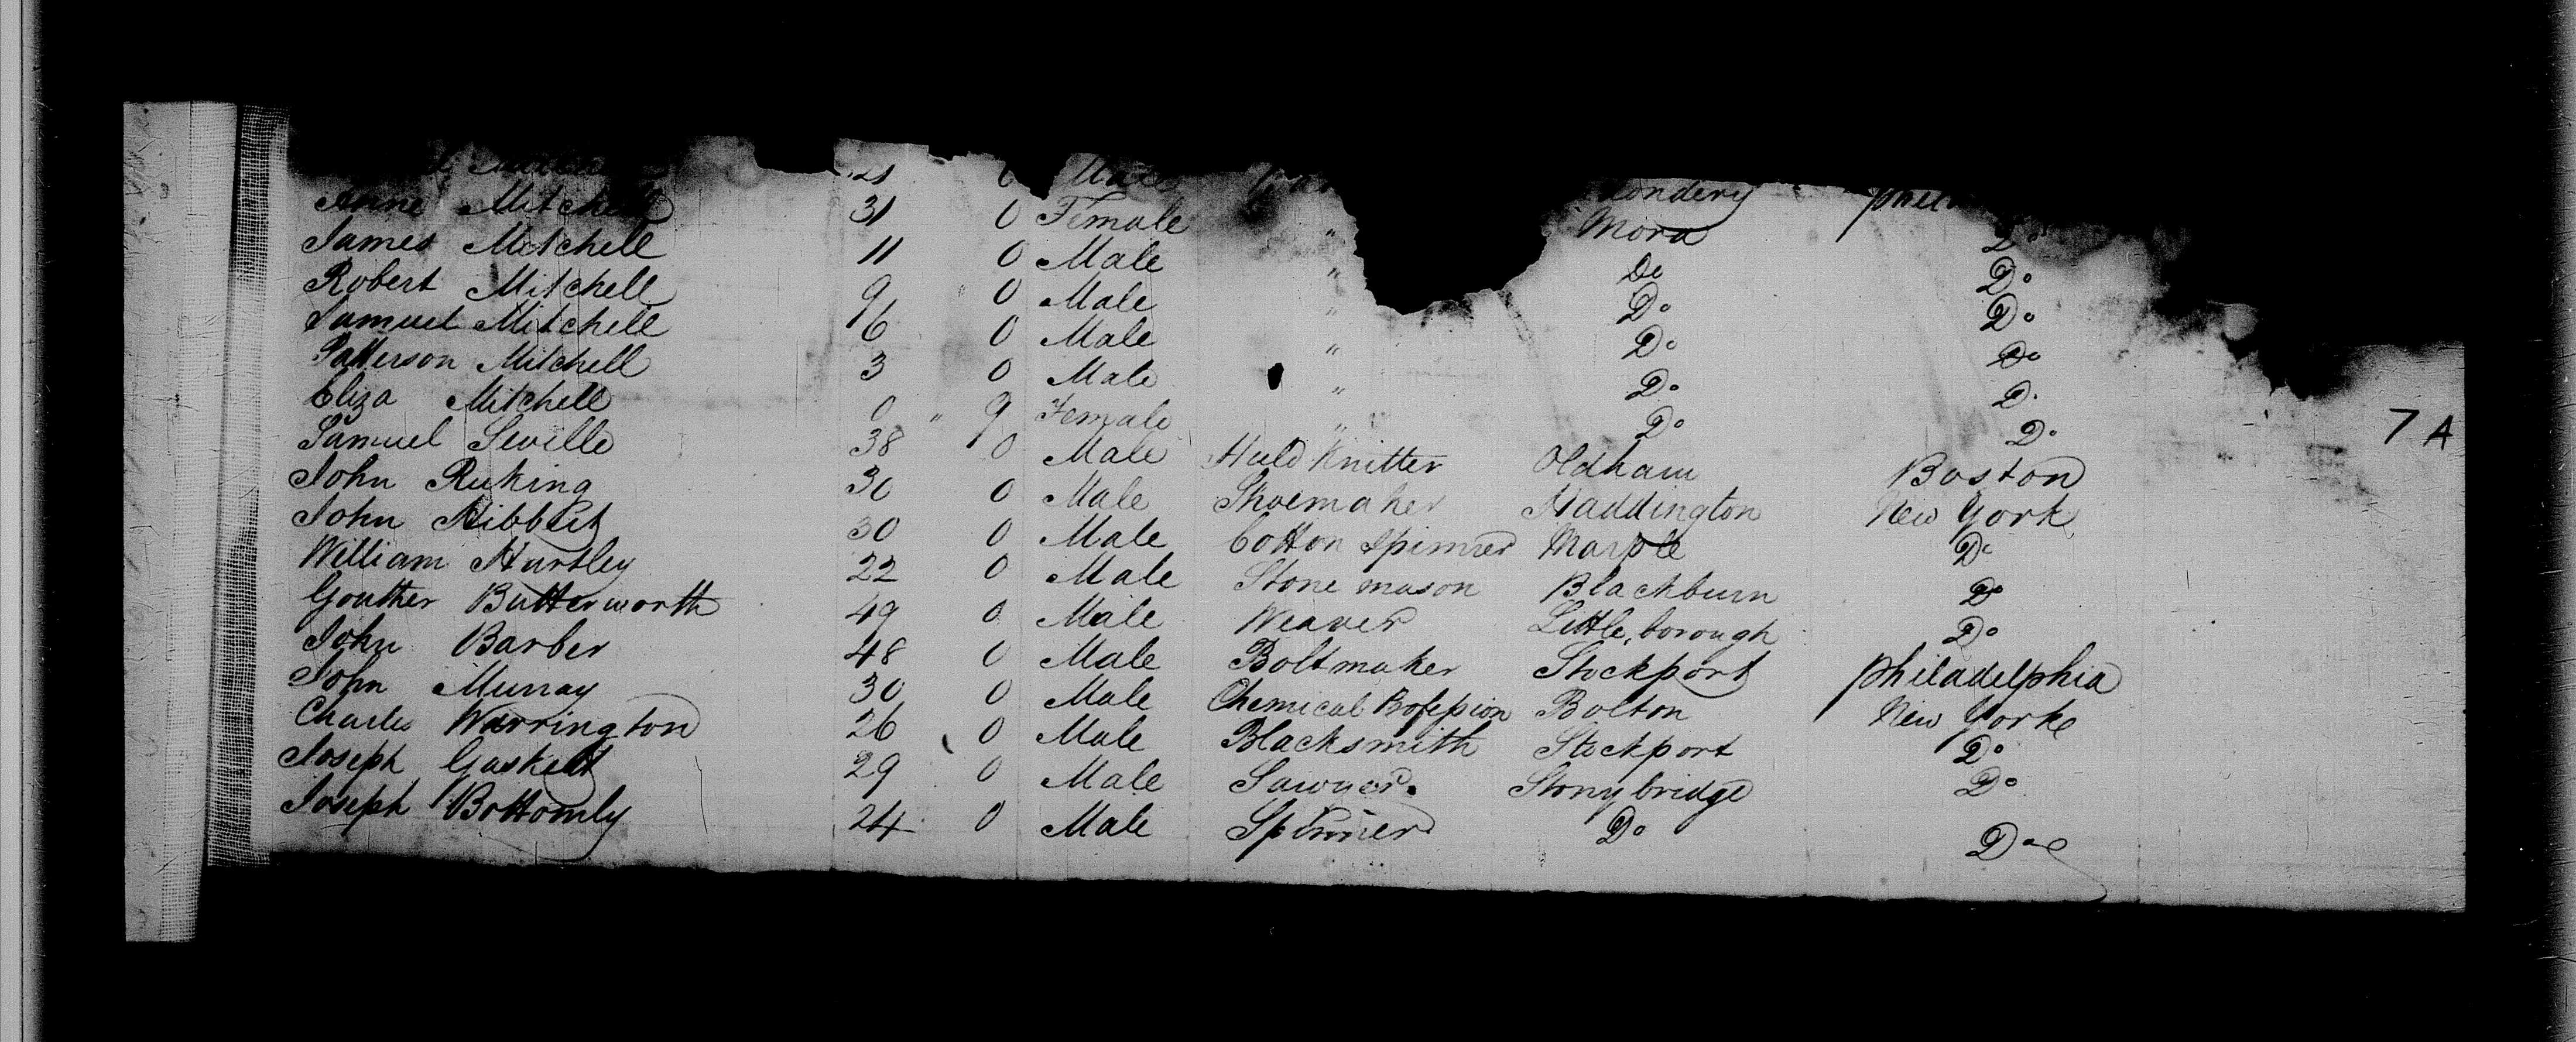 21 Male
Anne Mitchell 31 0 Female " Mora Do
James Mitchell 11 0 Male " Do Do
Robert Mitchell 9 0 Male " Do Do
Samuel Mitchell 6 0 Male " Do Do
Patterson Mitchell 3 0 Male " Do Do
Eliza Mitchell 0 " 9 Female " Do Do
Samuel Seville 38 0 Male Heald Knitter Oldham Boston
John 30 0 Male Shoemaker Haddington New York
John Hibbert 30 0 Male Cotton Spinner Marple Do
William Hartley 22 0 Male Stone mason Blackburn Do
Gouther Butterworth 49 0 Male Weaver Little,borough Do
John Barber 48 0 Male Boltmaker Stockport Philadelphia
John Murray 30 0 Male Chemical Profession Bolton New York
Charles Warrington 26 0 Male Blacksmith Stockport Do
Joseph Gaskell 29 0 Male Sawyer. Stonybridge Do
Joseph Bottomly 24 0 Male Spinner Do Do
7 A